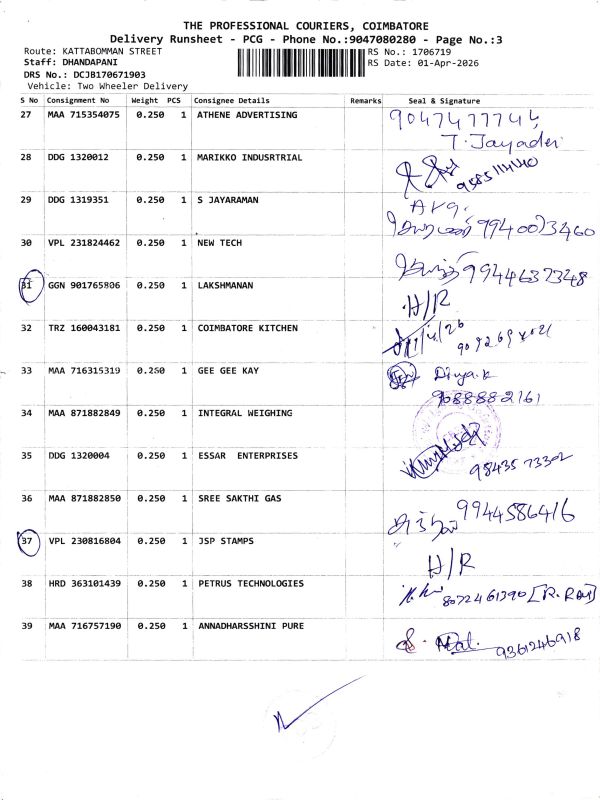 THE PROFESSIONAL COURIERS, COIMBATORE
Delivery Runsheet - PCG - Phone No.:9047080280 - Page No.:3
Route: KATTABOMMAN STREET RS No.: 1706719
Staff: DHANDAPANI RS Date: 01-Apr-2026
DRS No.: DCJB170671903
Vehicle: Two Wheeler Delivery
S No Consignment No Weight PCS Consignee Details Remarks Seal & Signature
27 MAA 715354075 0.250 1 ATHENE ADVERTISING
T. Jayadev
28 DDG 1320012 0.250 1 MARIKKO INDUSRTRIAL
9585114140
29 DDG 1319351 0.250 1 S JAYARAMAN
9940073460
30 VPL 231824462 0.250 1 NEW TECH
9944637348
31 GGN 901765806 0.250 1 LAKSHMANAN H/R
32 TRZ 160043181 0.250 1 COIMBATORE KITCHEN
33 MAA 716315319 0.250 1 GEE GEE KAY Divya.k
9088882161
34 MAA 871882849 0.250 1 INTEGRAL WEIGHING
35 DDG 1320004 0.250 1 ESSAR ENTERPRISES
9843573302
36 MAA 871882850 0.250 1 SREE SAKTHI GAS 9944586416
37 VPL 230816804 0.250 1 JSP STAMPS
H/R
38 HRD 363101439 0.250 1 PETRUS TECHNOLOGIES
8072461390
39 MAA 716757190 0.250 1 ANNADHARSSHINI PURE
9361246918